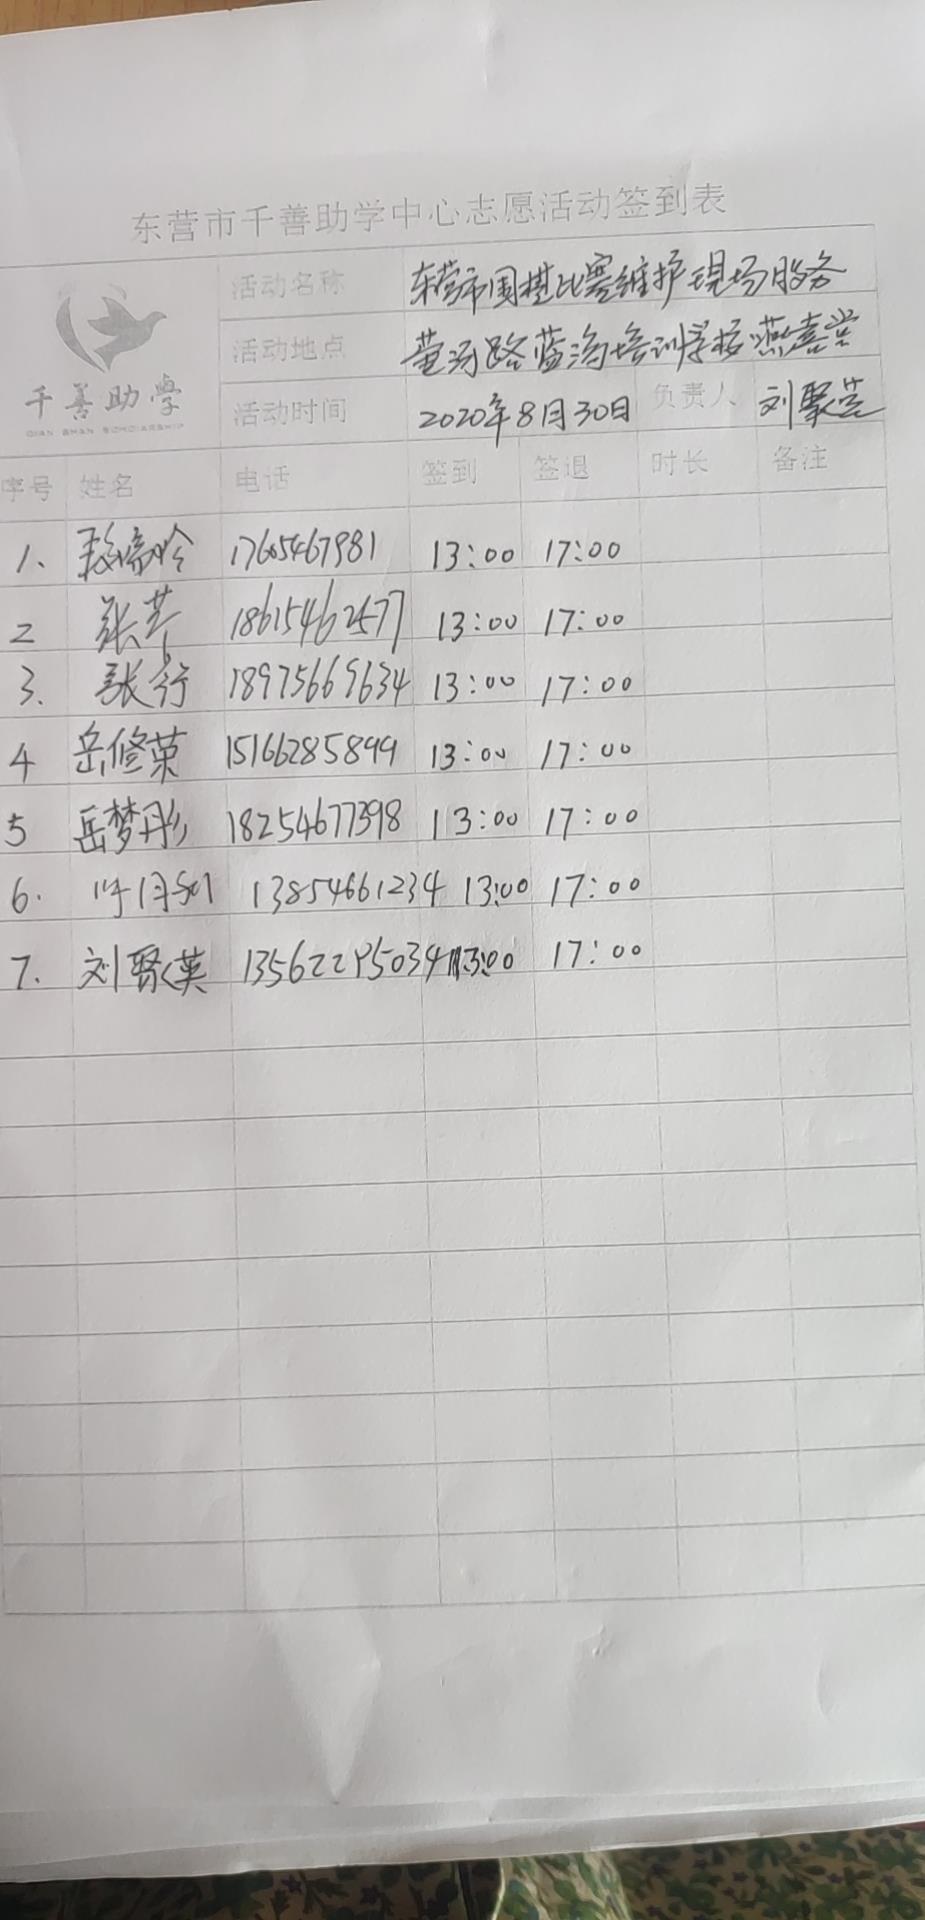 东营市千善助学中心志愿活动签到表
千善助学
QIAN SHAN SCHOLARSHIP
活动名称 东营市围棋比赛维护现场服务
活动地点 路蓝海培训学校燕喜堂
活动时间 2020年8月30日 负责人 刘聚英
序号 姓名 电话 签到 签退 时长 备注
1. 1765467981 13:00 17:00
2 张芹 18615462577 13:00 17:00
3. 张行 18975669634 13:00 17:00
4 岳修荣 15166285899 13:00 17:00
5 岳梦彤 18254677398 13:00 17:00
6. 13854661234 13:00 17:00
7. 刘聚英 13562295034 13:00 17:00